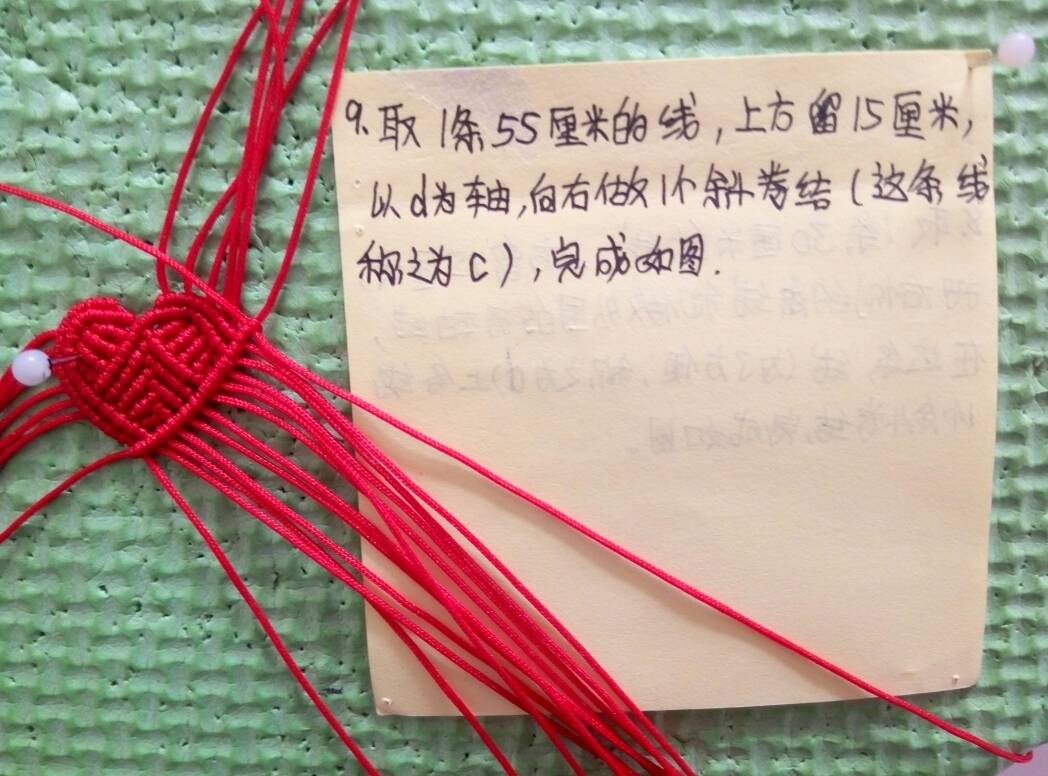 9.取1条55厘米的线,上方留15厘米,
以d为轴,向右做1个斜卷结(这条线
称之为c),完成如图.